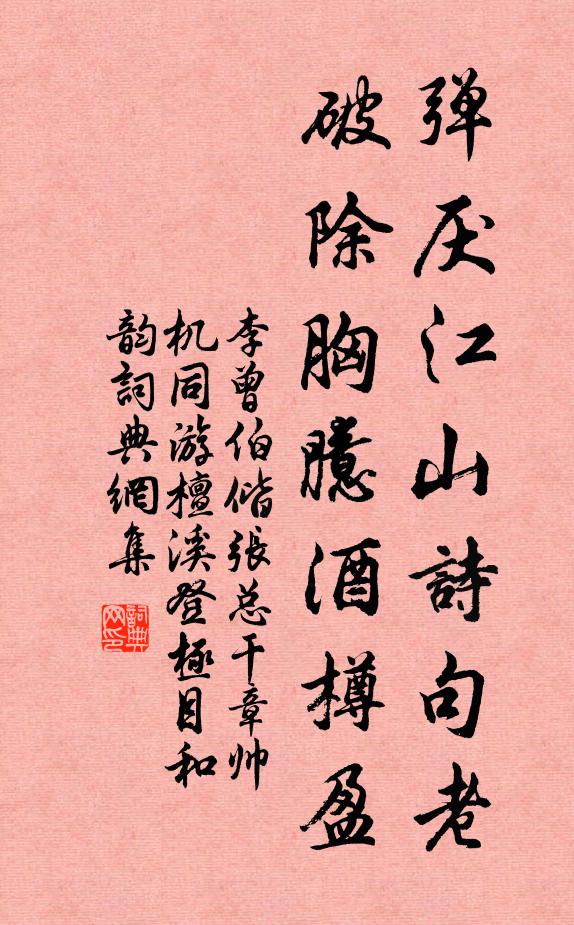 弹压江山詩句老
破除胸臆酒樽盈
李曾伯偕張总干章帅
机同游檀溪登極目和
韵詞典網集
詞典
网印